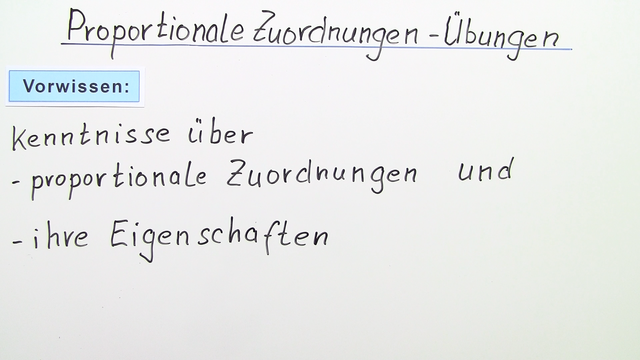 Proportionale Zuordnungen - Übungen
Vorwissen:
Kenntnisse über
- proportionale Zuordnungen und
- ihre Eigenschaften